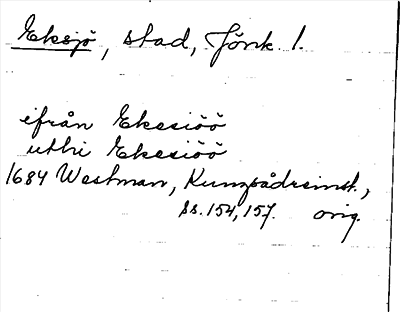 Eksjö, stad, Jönk. l.
ifrån Ekesiöö
uthi Ekesiöö
1684 Westman, Kunzrådzsinst.,
ss. 154, 157. orig.